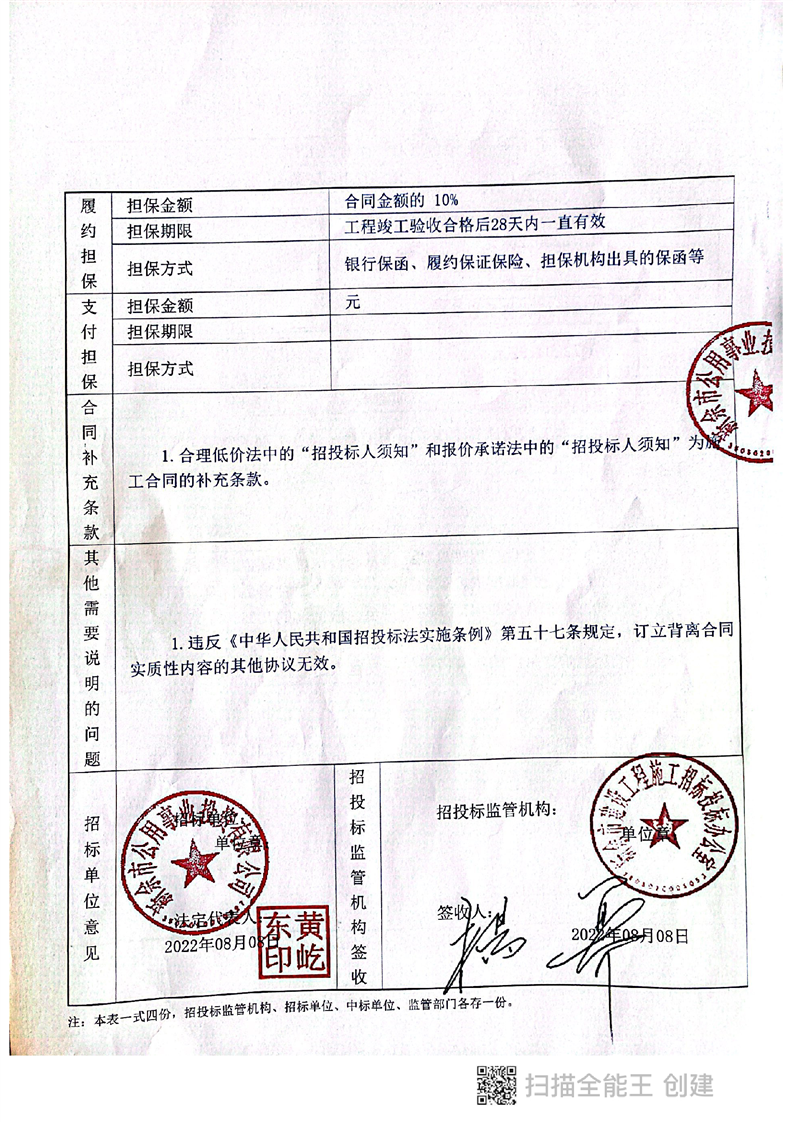 履约担保
担保金额
合同金额的 10%
担保期限
工程竣工验收合格后28天内一直有效
担保方式
银行保函、履约保证保险、担保机构出具的保函等
支付担保
担保金额
元
担保期限
担保方式
新余市公用事业投
合同补充条款
1.合理低价法中的“招投标人须知”和报价承诺法中的“招投标人须知”为施
工合同的补充条款。
其他需要说明的问题
1.违反《中华人民共和国招投标法实施条例》第五十七条规定，订立背离合同
实质性内容的其他协议无效。
招标单位意见
招标单位
单位章
新余市公用事业投资有限公司
法定代表人
2022年08月08日
黄屹东印
招投标监管机构签收
招投标监管机构：
单位章
建设工程施工招标投标办公室
签收人：
2022年08月08日
注：本表一式四份，招投标监管机构、招标单位、中标单位、监管部门各存一份。
扫描全能王 创建